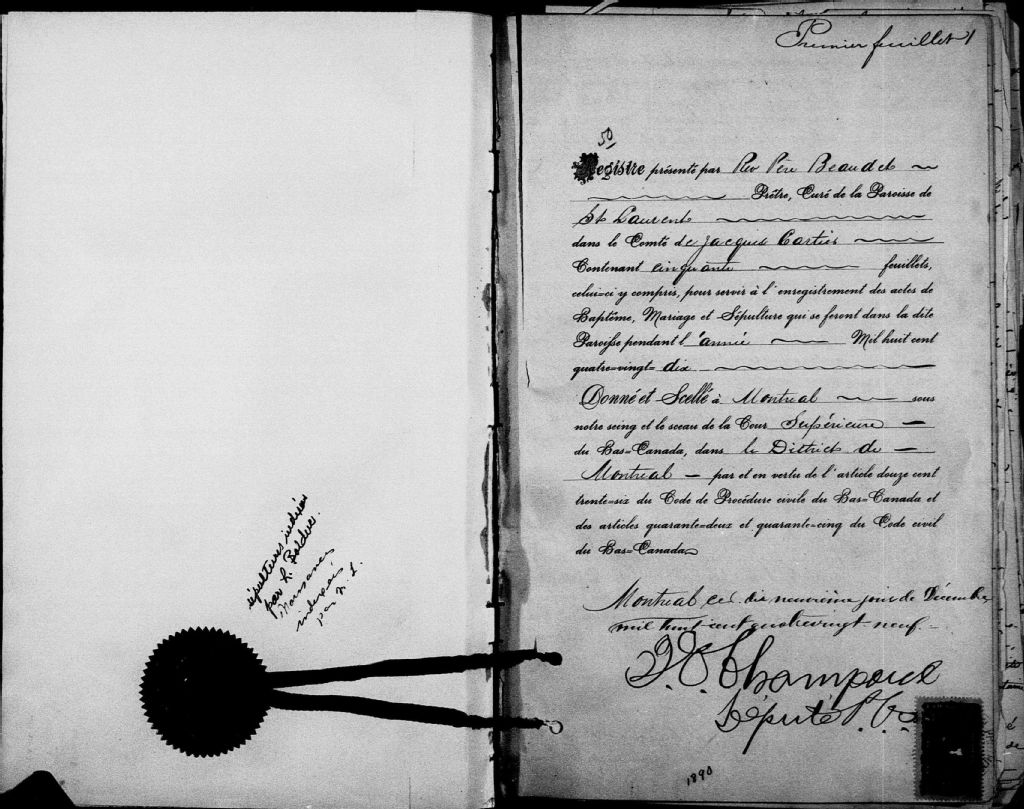 sépultures indexées
par L. Bolduc.
Naissances
indexées
par
Premier feuillet 1
50
Registre présenté par Rev Père Beaudet
Prêtre, Curé de la Paroisse de
St Laurent
dans le Comté de Jacques Cartier
Contenant cinquante feuillets,
celui=ci y compris, pour servir à l'enregistrement des actes de
Baptême, Mariage et Sépulture qui se feront dans la dite
Paroisse pendant l'année Mil huit cent
quatre=vingt= dix
Donné et Scellé à Montreal sous
notre seing et le sceau de la Cour Supérieure
du Bas=Canada, dans le District de
Montreal par et en vertu de l'article douze cent
trente=six du Code de Procédure civile du Bas=Canada et
des articles quarante=deux et quarante=cinq du Code civil
du Bas=Canada
Montreal, ce dix neuvième jour de Décembre
mil huit cent quatrevingt neuf.
Champoux
Député P.
1890